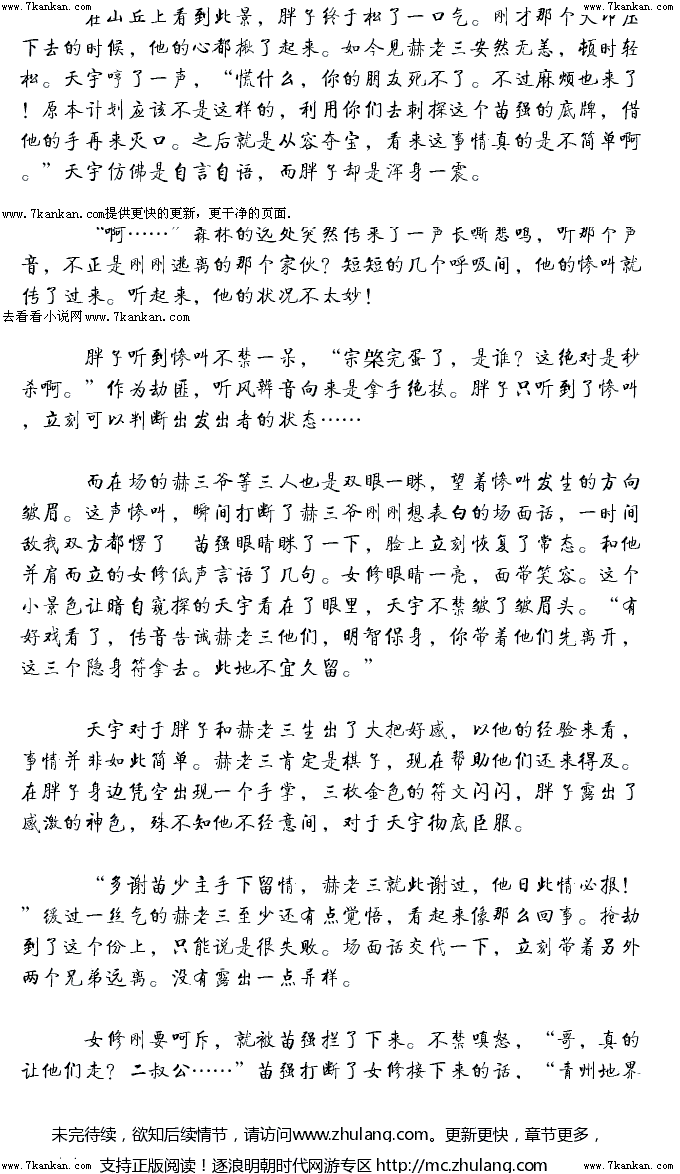 www.7kankan.com www.7kankan.com
在山丘上看到此景，胖子终于松了一口气。刚才那个大印压
下去的时候，他的心都揪了起来。如今见赫老三安然无恙，顿时轻
松。天宇哼了一声，“慌什么，你的朋友死不了。不过麻烦也来了
！原本计划应该不是这样的，利用你们去刺探这个苗强的底牌，借
他的手再来灭口。之后就是从容夺宝，看来这事情真的是不简单啊
。”天宇仿佛是自言自语，而胖子却是浑身一震。
www.7kankan.com提供更快的更新，更干净的页面.
“啊……”森林的远处突然传来了一声长嘶悲鸣，听那个声
音，不正是刚刚逃离的那个家伙？短短的几个呼吸间，他的惨叫就
传了过来。听起来，他的状况不太妙！
去看看小说网www.7kankan.com
胖子听到惨叫不禁一呆，“宗棠完蛋了，是谁？这绝对是秒
杀啊。”作为劫匪，听风辨音向来是拿手绝技。胖子只听到了惨叫
，立刻可以判断出发出者的状态……
而在场的赫三爷等三人也是双眼一眯，望着惨叫发生的方向
皱眉。这声惨叫，瞬间打断了赫三爷刚刚想表白的场面话，一时间
敌我双方都愣了 苗强眼睛眯了一下，脸上立刻恢复了常态。和他
并肩而立的女修低声言语了几句。女修眼睛一亮，面带笑容。这个
小景色让暗自窥探的天宇看在了眼里，天宇不禁皱了皱眉头。“有
好戏看了，传音告诫赫老三他们，明智保身，你带着他们先离开，
这三个隐身符拿去。此地不宜久留。”
天宇对于胖子和赫老三生出了大把好感，以他的经验来看，
事情并非如此简单。赫老三肯定是棋子，现在帮助他们还来得及。
在胖子身边凭空出现一个手掌，三枚金色的符文闪闪，胖子露出了
感激的神色，殊不知他不经意间，对于天宇彻底臣服。
“多谢苗少主手下留情，赫老三就此谢过，他日此情必报！
”缓过一丝气的赫老三至少还有点觉悟，看起来像那么回事。抢劫
到了这个份上，只能说是很失败。场面话交代一下，立刻带着另外
两个兄弟远离。没有露出一点异样。
女修刚要呵斥，就被苗强拦了下来。不禁嗔怒，“哥，真的
让他们走？二叔公……”苗强打断了女修接下来的话，“青州地界
未完待续，欲知后续情节，请访问www.zhulang.com。更新更快，章节更多，
www.7kankan.com 支持正版阅读！逐浪明朝时代网游专区 http://mc.zhulang.com www.7kankan.com